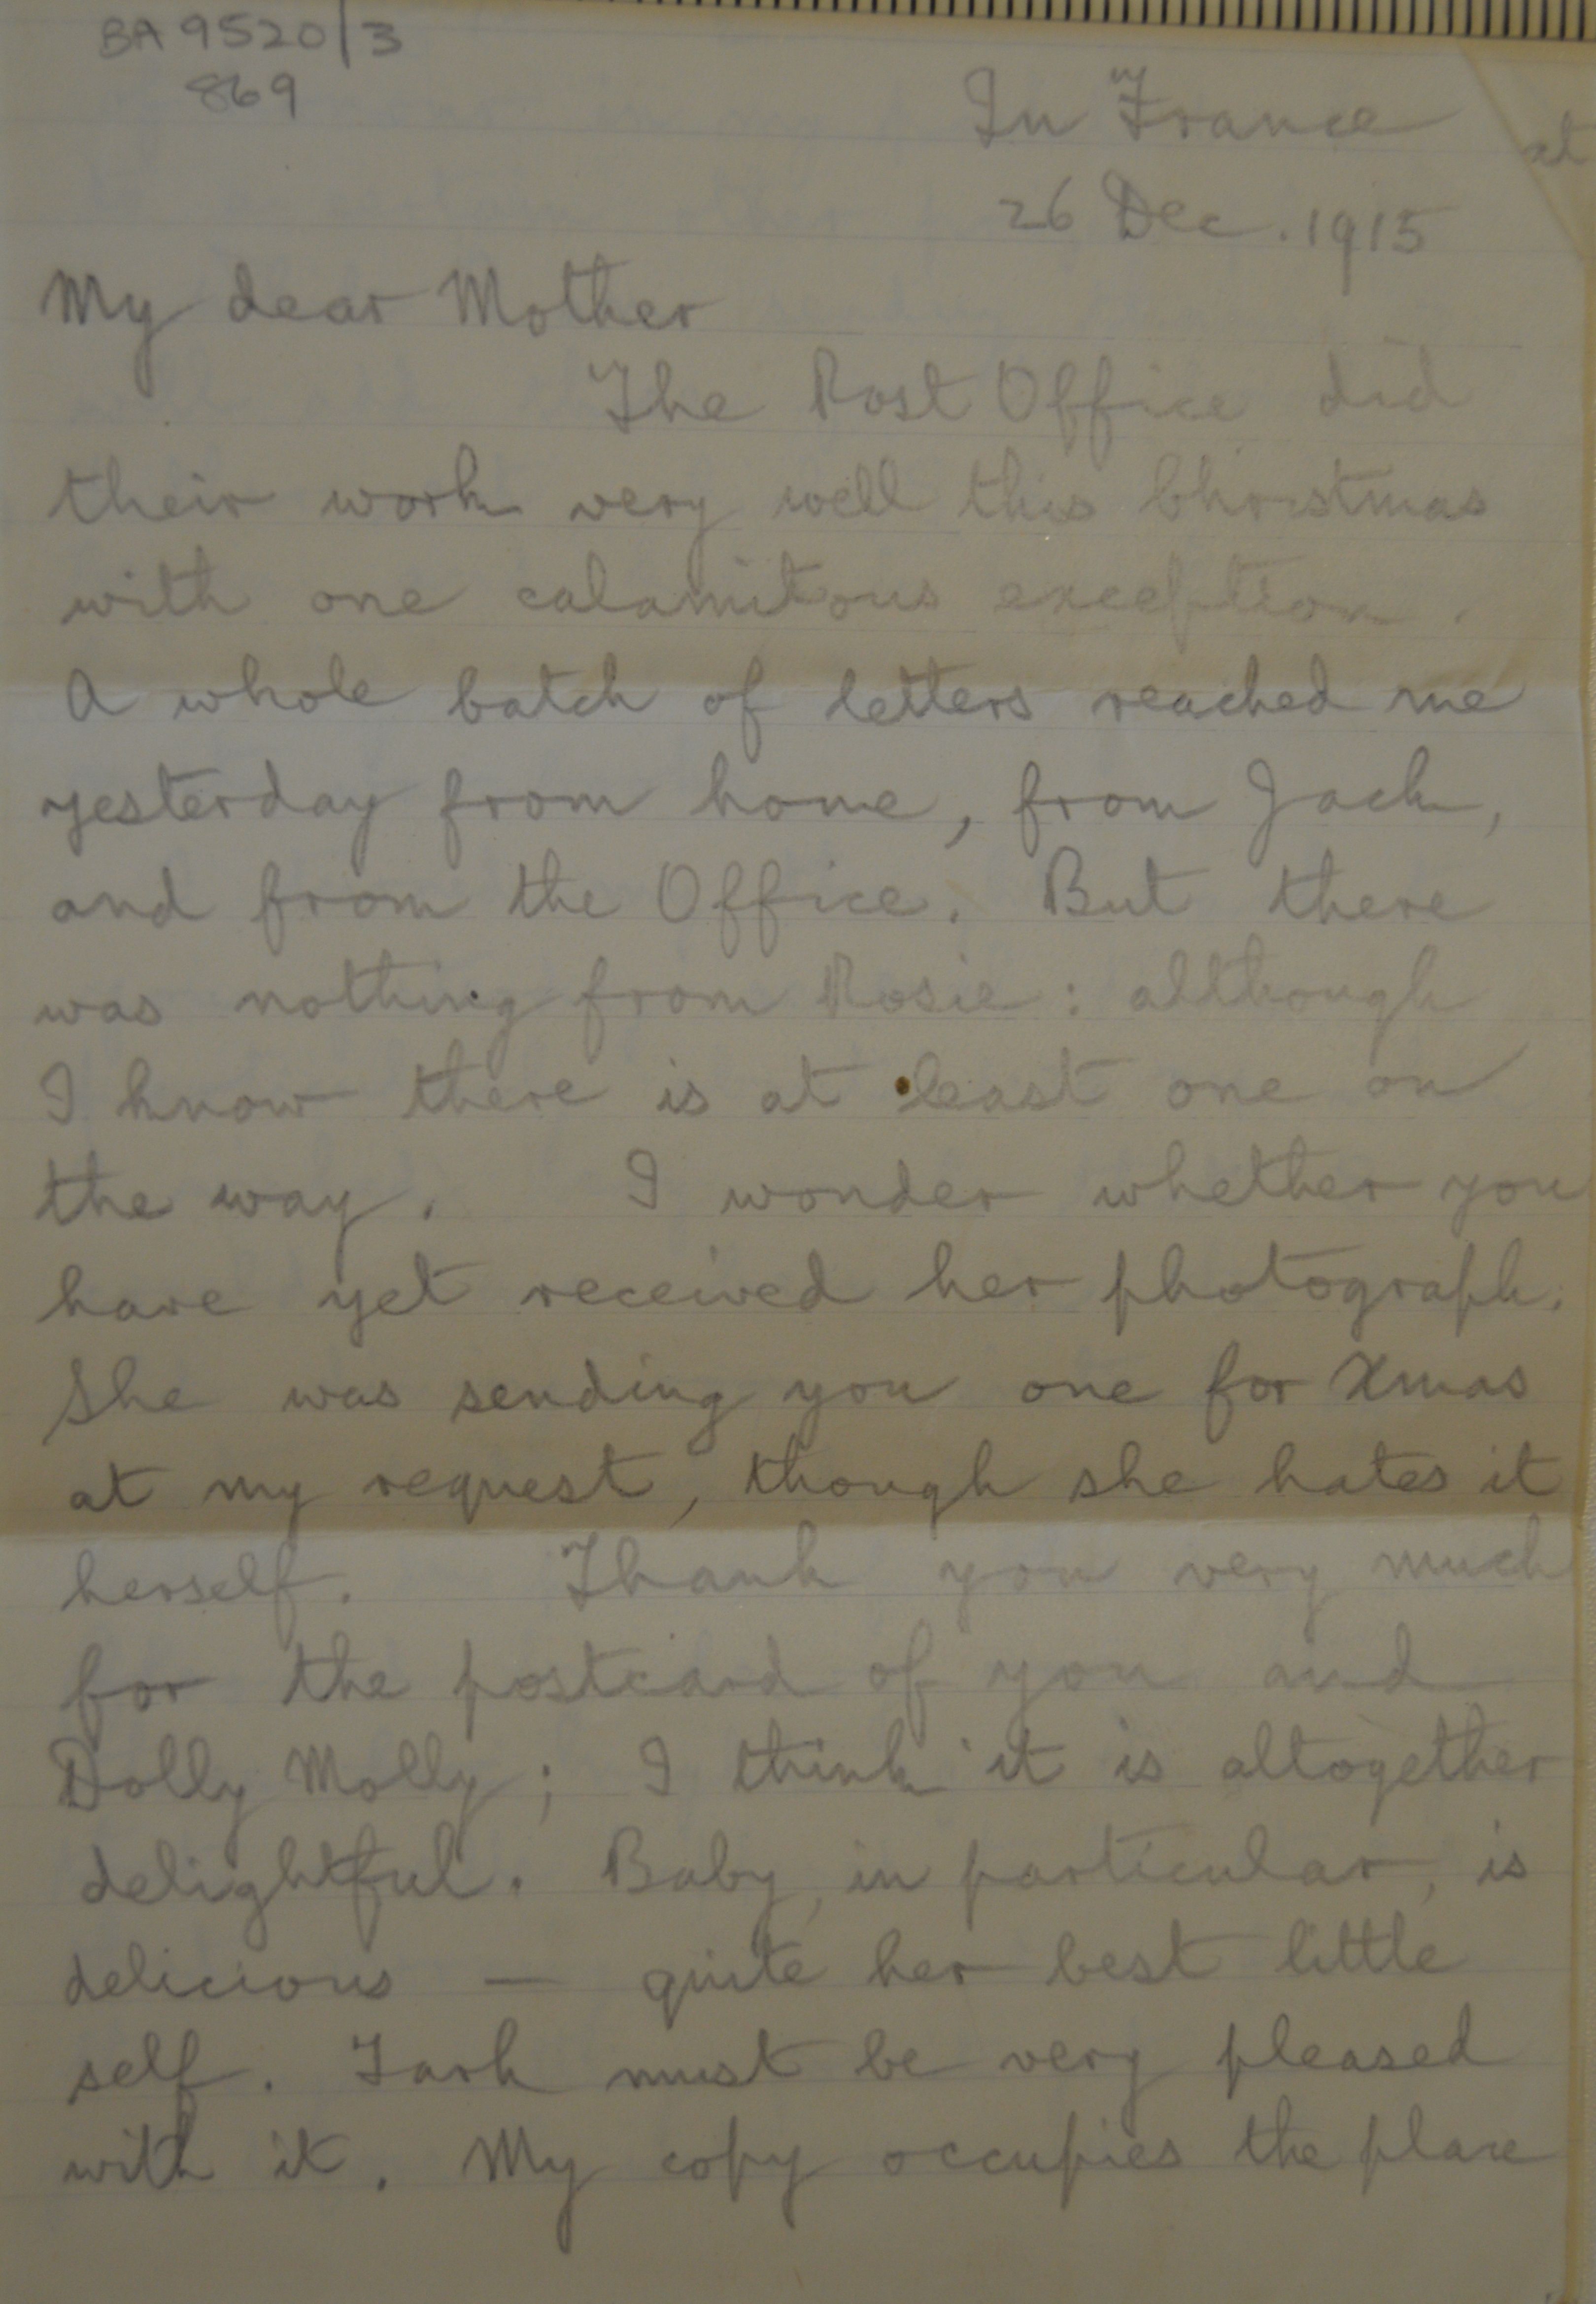 BA 9520/3
869
In France
at
26 Dec. 1915
My dear Mother
The Post Office did
their work very well this Christmas
with one calamitous exception.
A whole batch of letters reached me
yesterday from home, from Jack,
and from the Office. But there
was nothing from Rosie: although
I know there is at least one on
the way. I wonder whether you
have yet received her photograph.
She was sending you one for Xmas
at my request, though she hates it
herself. Thank you very much
for the postcard of you and
Dolly Molly; I think it is altogether
delightful. Baby, in particular, is
delicious — quite her best little
self. Jack must be very pleased
with it. My copy occupies the place